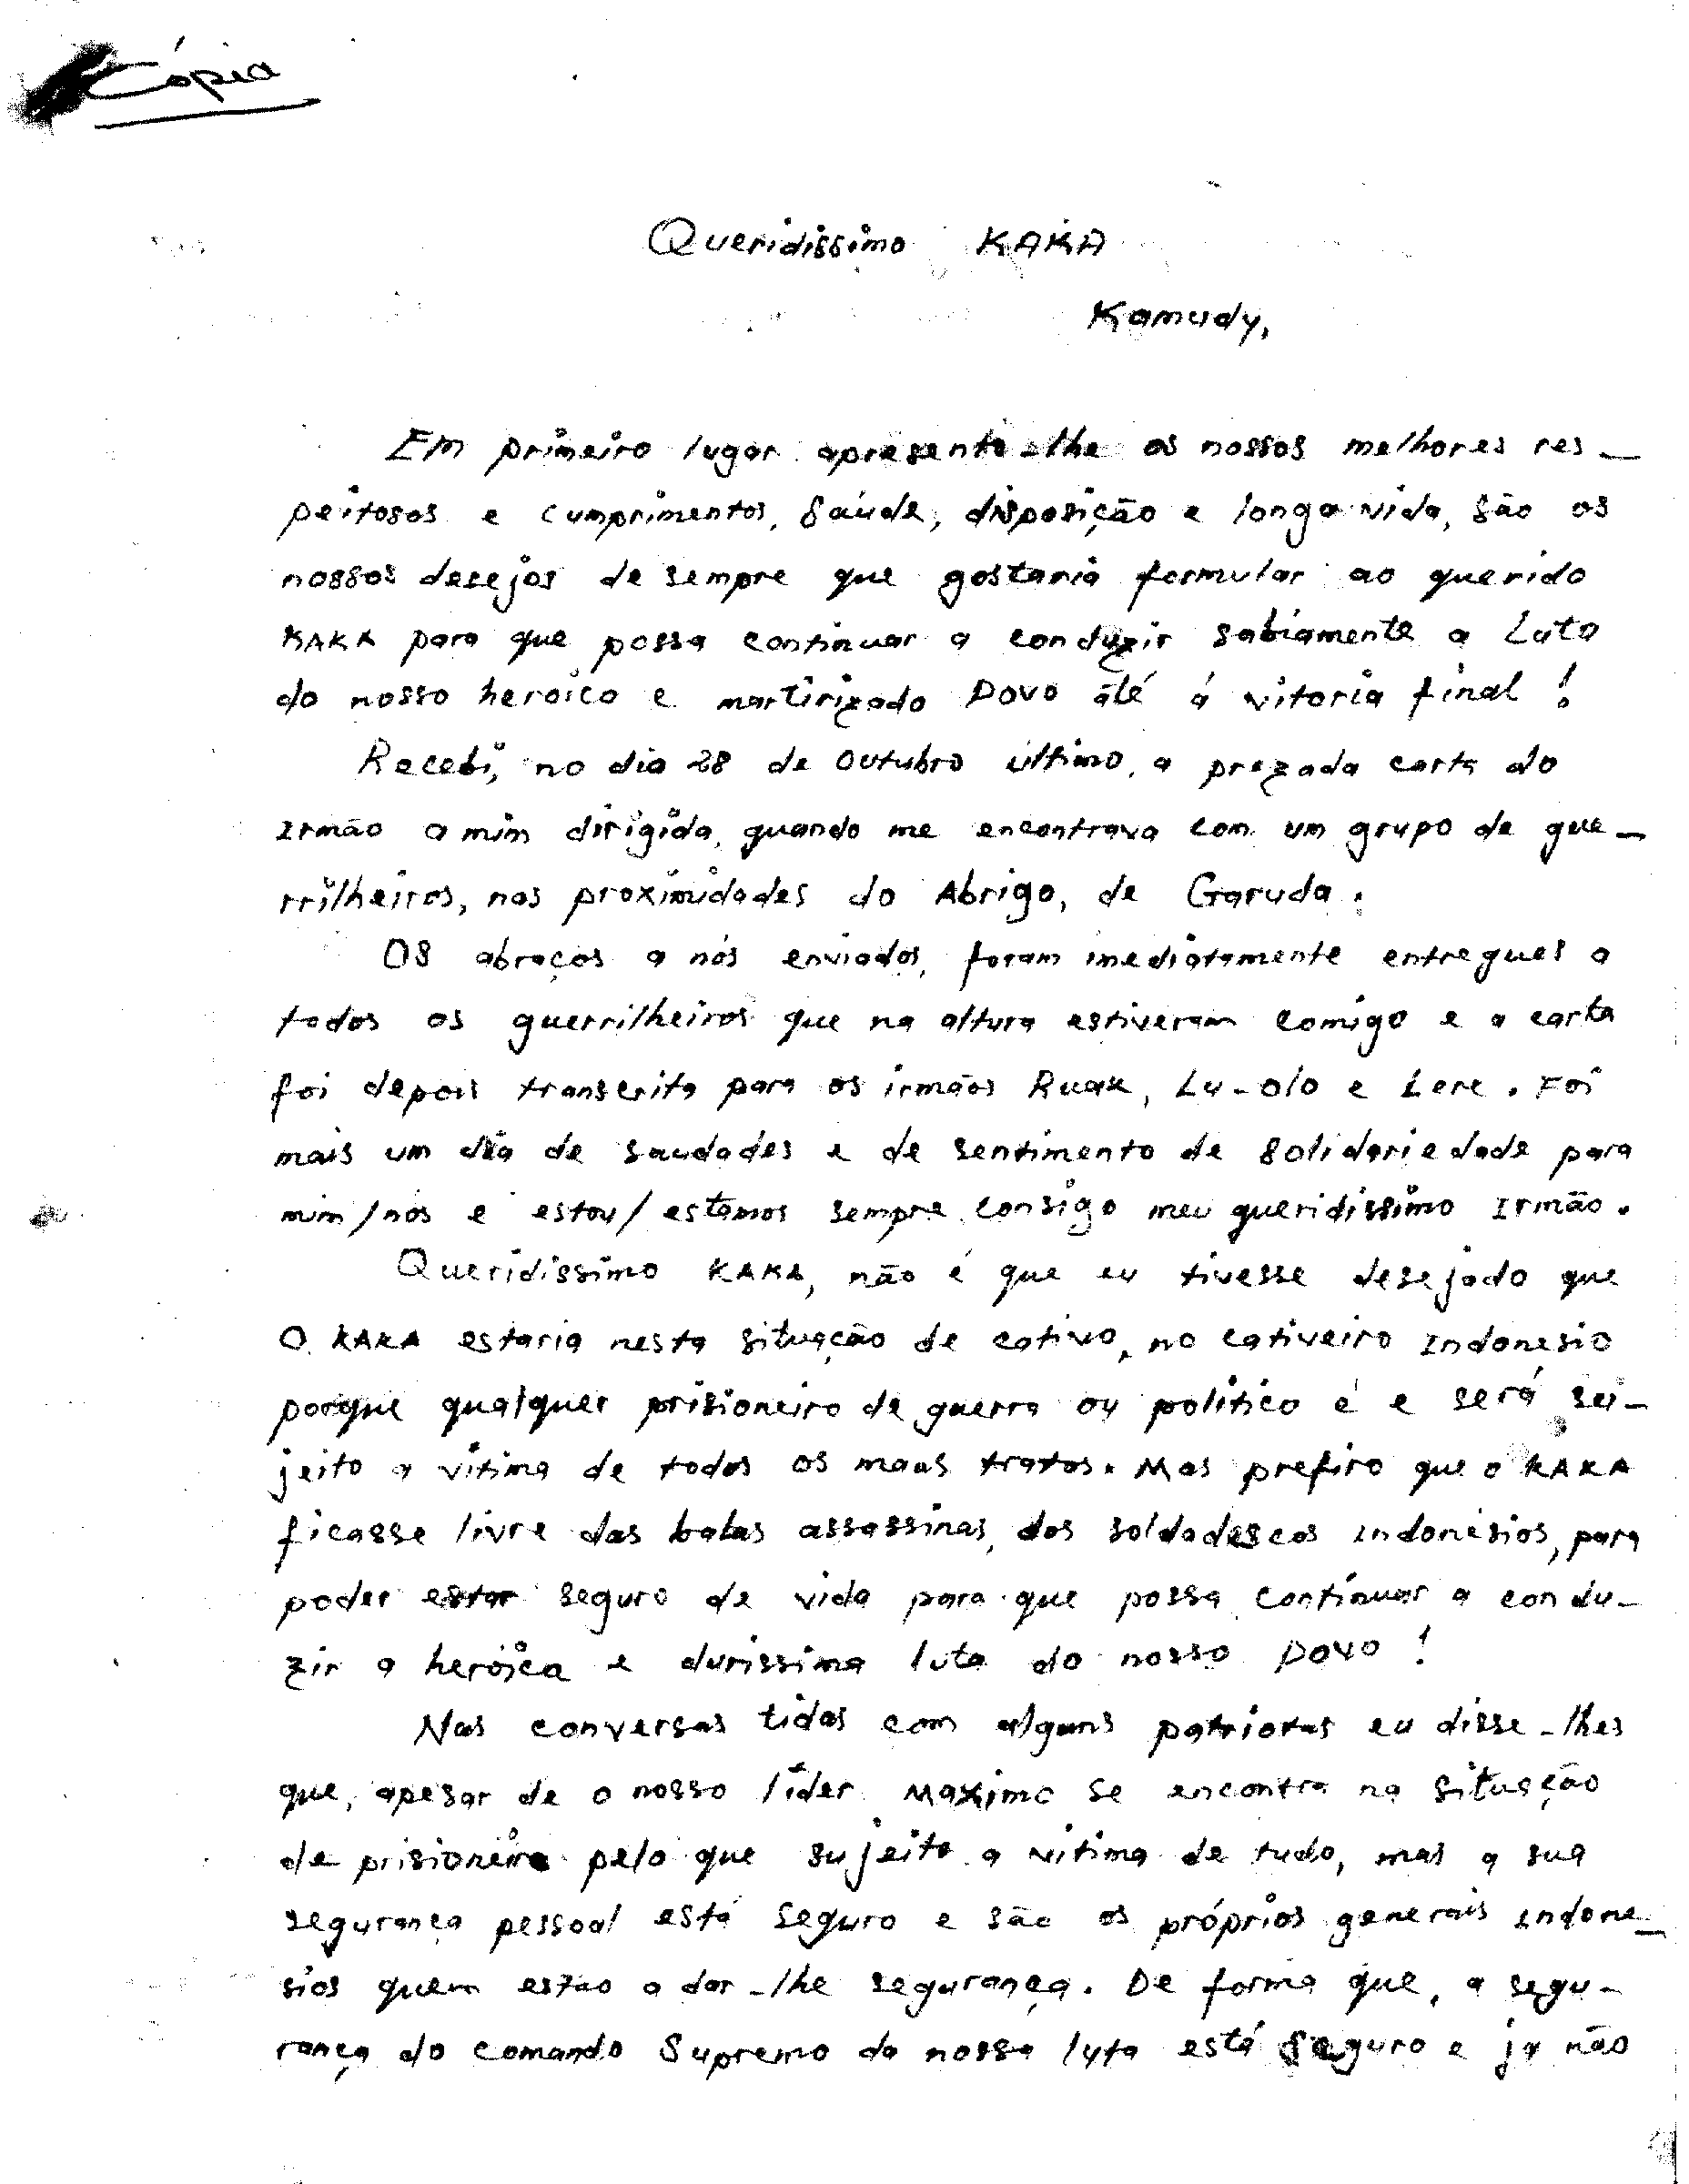 Cópia
Queridissimo KAKA
Kamudy,
Em primeiro lugar apresento-lhe os nossos melhores res-
peitosos e cumprimentos, saúde, disposição e longa vida, são os
nossos desejos de sempre que gostaria formular ao querido
KAKA para que possa continuar a conduzir sabiamente a Luta
do nosso heroico e martirizado Povo até á vitoria final!
Recebi, no dia 28 de Outubro último, a prezada carta do
Irmão a mim dirigida, quando me encontrava com um grupo de gue-
rrilheiros, nas proximidades do Abrigo, de Garuda.
OS abraços a nós enviados, foram imediatamente entregues a
todos os guerrilheiros que na altura estiveram comigo e a carta
foi depois transcrita para os irmãos Ruak, Lu-olo e Lere. Foi
mais um dia de saudades e de sentimento de solidariedade para
mim/nós e estou/estamos sempre consigo meu queridissimo Irmão.
Queridissimo KAKA, não é que eu tivesse desejado que
O KAKA estaria nesta situação de cativo, no cativeiro Indonesio
porque qualquer prisioneiro de guerra ou politico é e será sei-
jeito a vitima de todos os maus tratos. Mas prefiro que o KAKA
ficasse livre das balas assassinas, dos soldadescos indonésios, para
poder estar seguro de vida para que possa continuar a condu-
zir a heroica e durissima luta do nosso Povo!
Nas conversas tidas com alguns patriotas eu disse-lhes
que, apesar de o nosso líder Maximo se encontra na situação
de prisioneiro pelo que sujeito a vitima de tudo, mas a sua
segurança pessoal está seguro e são os próprios generais indone-
sios quem estão a dar-lhe segurança. De forma que, a segu-
rança do comando Supremo da nossa luta está seguro e ja não